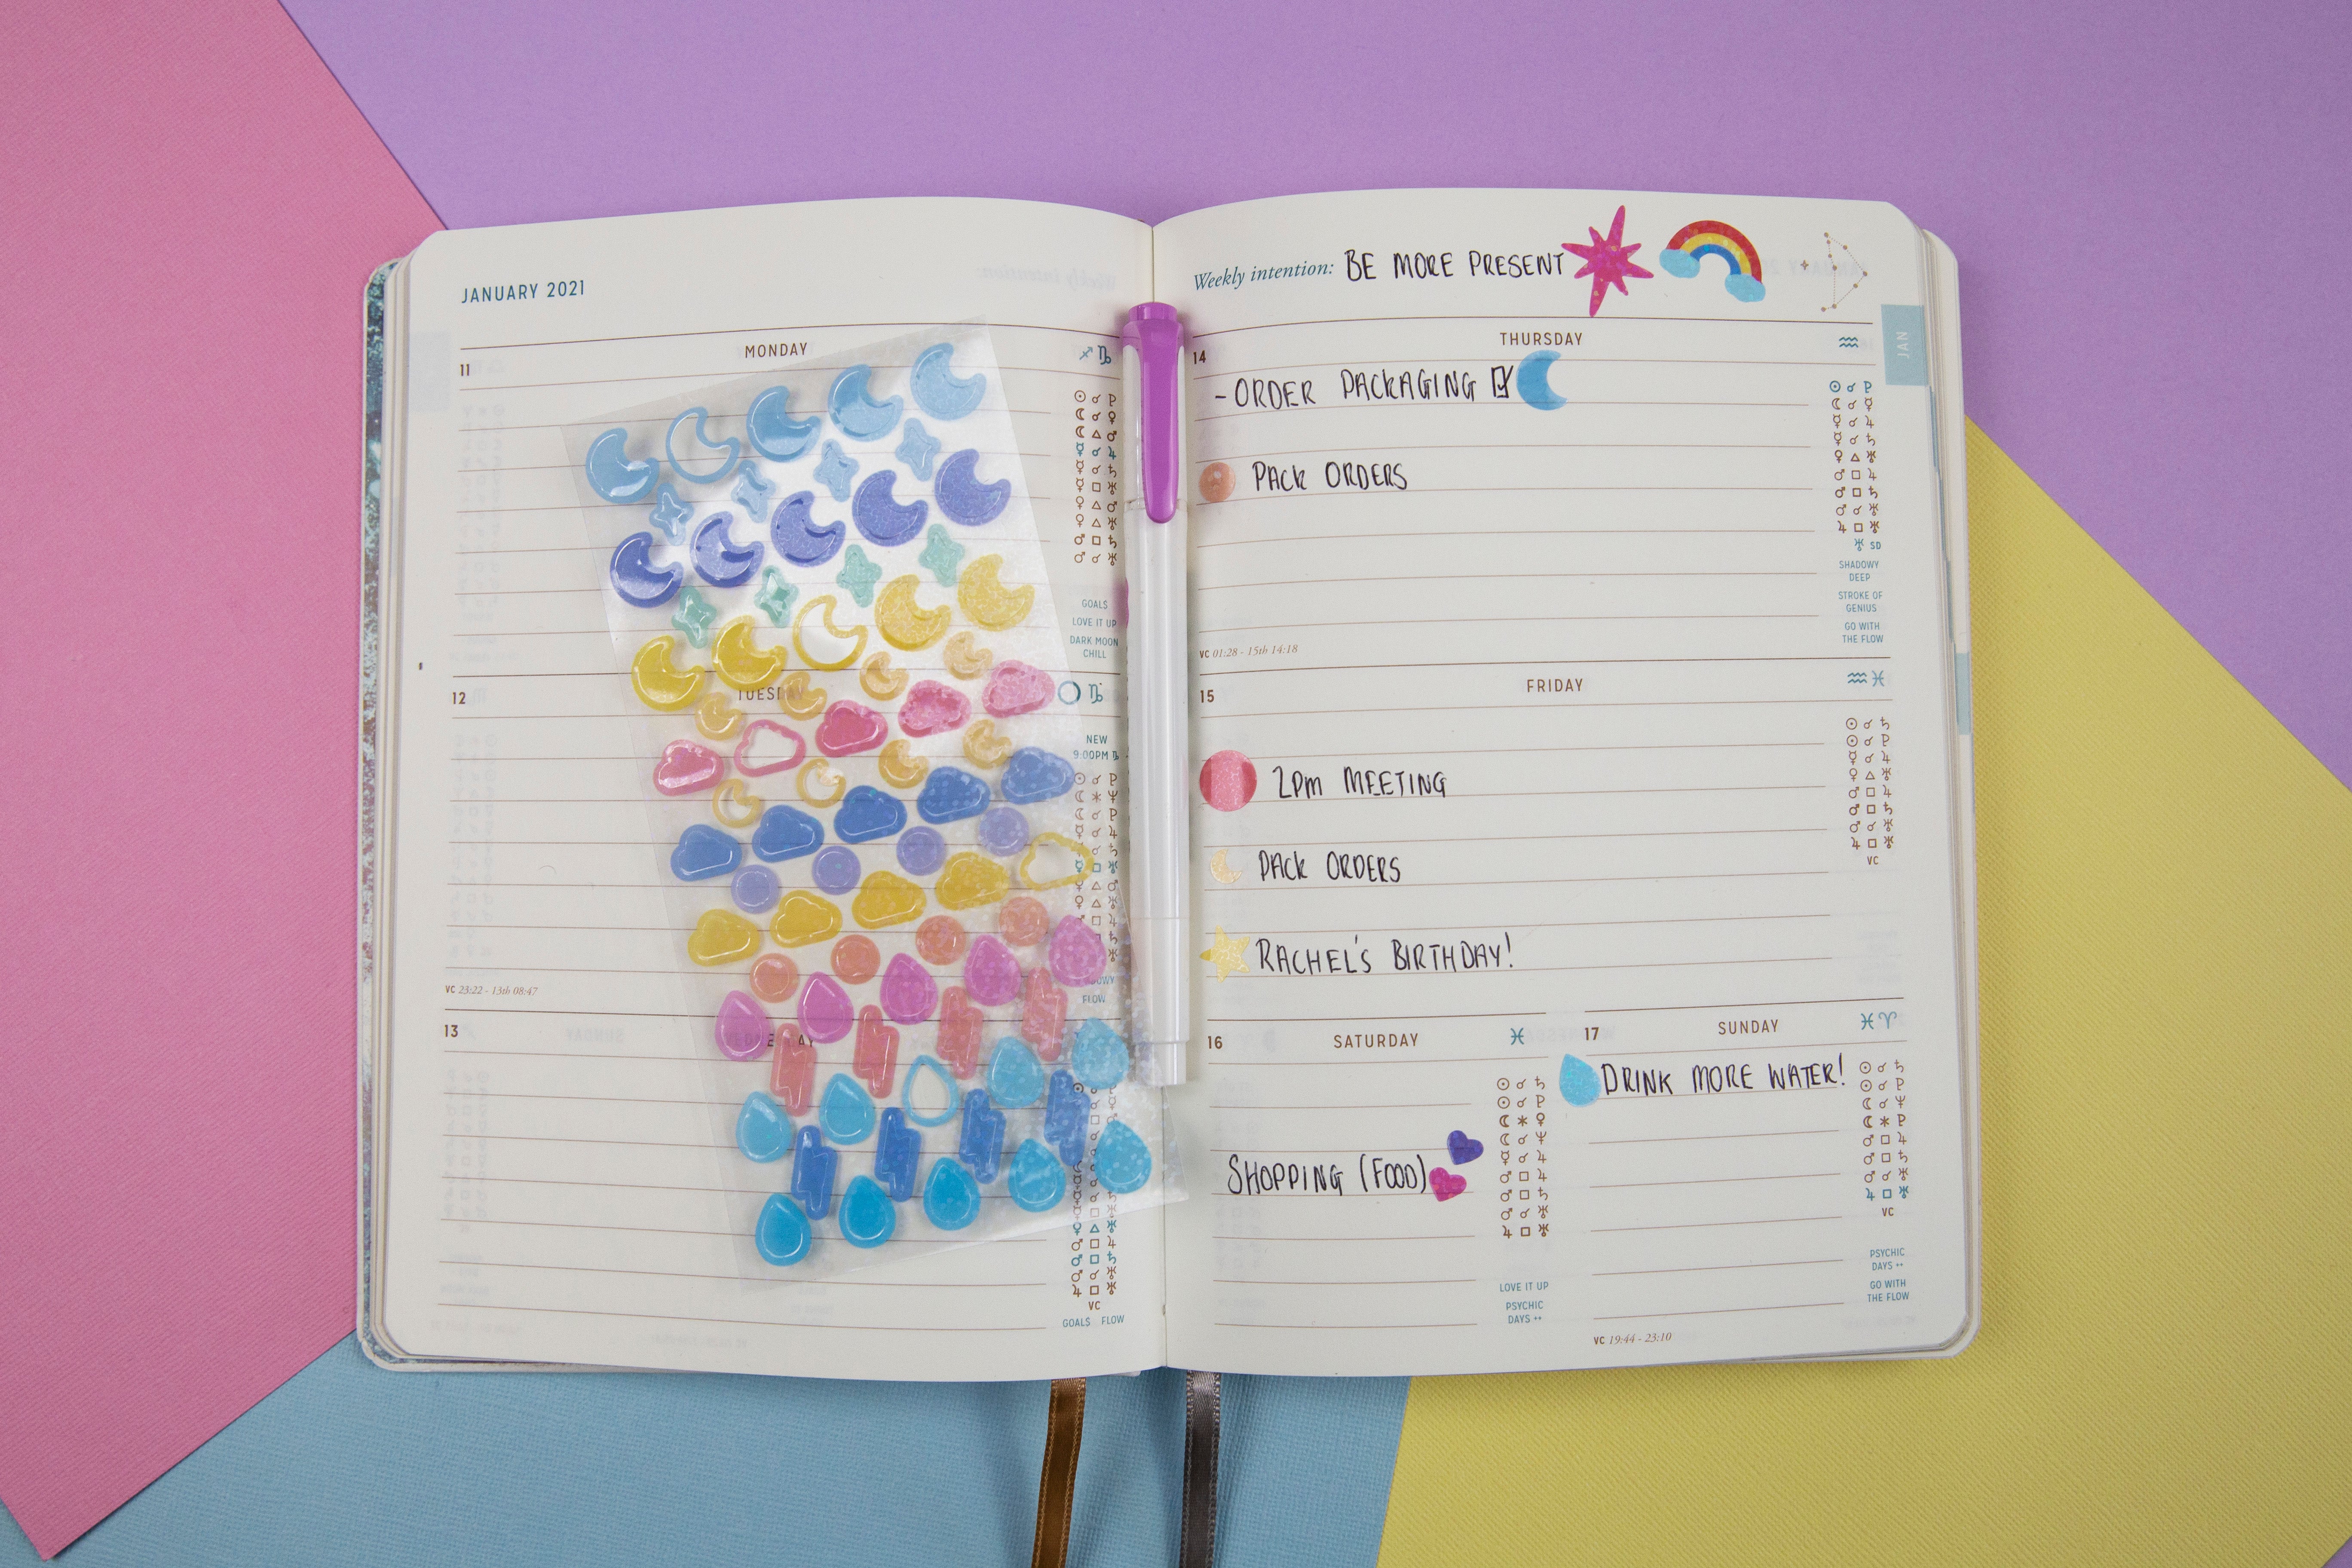 JANUARY 2021
MONDAY
11
GOALS
LOVE IT UP
DARK MOON
CHILL
12
NEW
9:00PM
FLOW
VC 23:22 - 13th 08:47
13
VC
GOALS FLOW
Weekly intention: BE MORE PRESENT
JAN
THURSDAY
14
- ORDER PACKAGING
PACK ORDERS
SD
SHADOWY
DEEP
STROKE OF
GENIUS
GO WITH
THE FLOW
VC 01:28 - 15th 14:18
FRIDAY
15
2PM MEETING
PACK ORDERS
RACHEL'S BIRTHDAY!
VC
16 SATURDAY
SHOPPING (FOOD)
LOVE IT UP
PSYCHIC
DAYS ++
17 SUNDAY
DRINK MORE WATER!
VC
PSYCHIC
DAYS ++
GO WITH
THE FLOW
VC 19:44 - 23:10